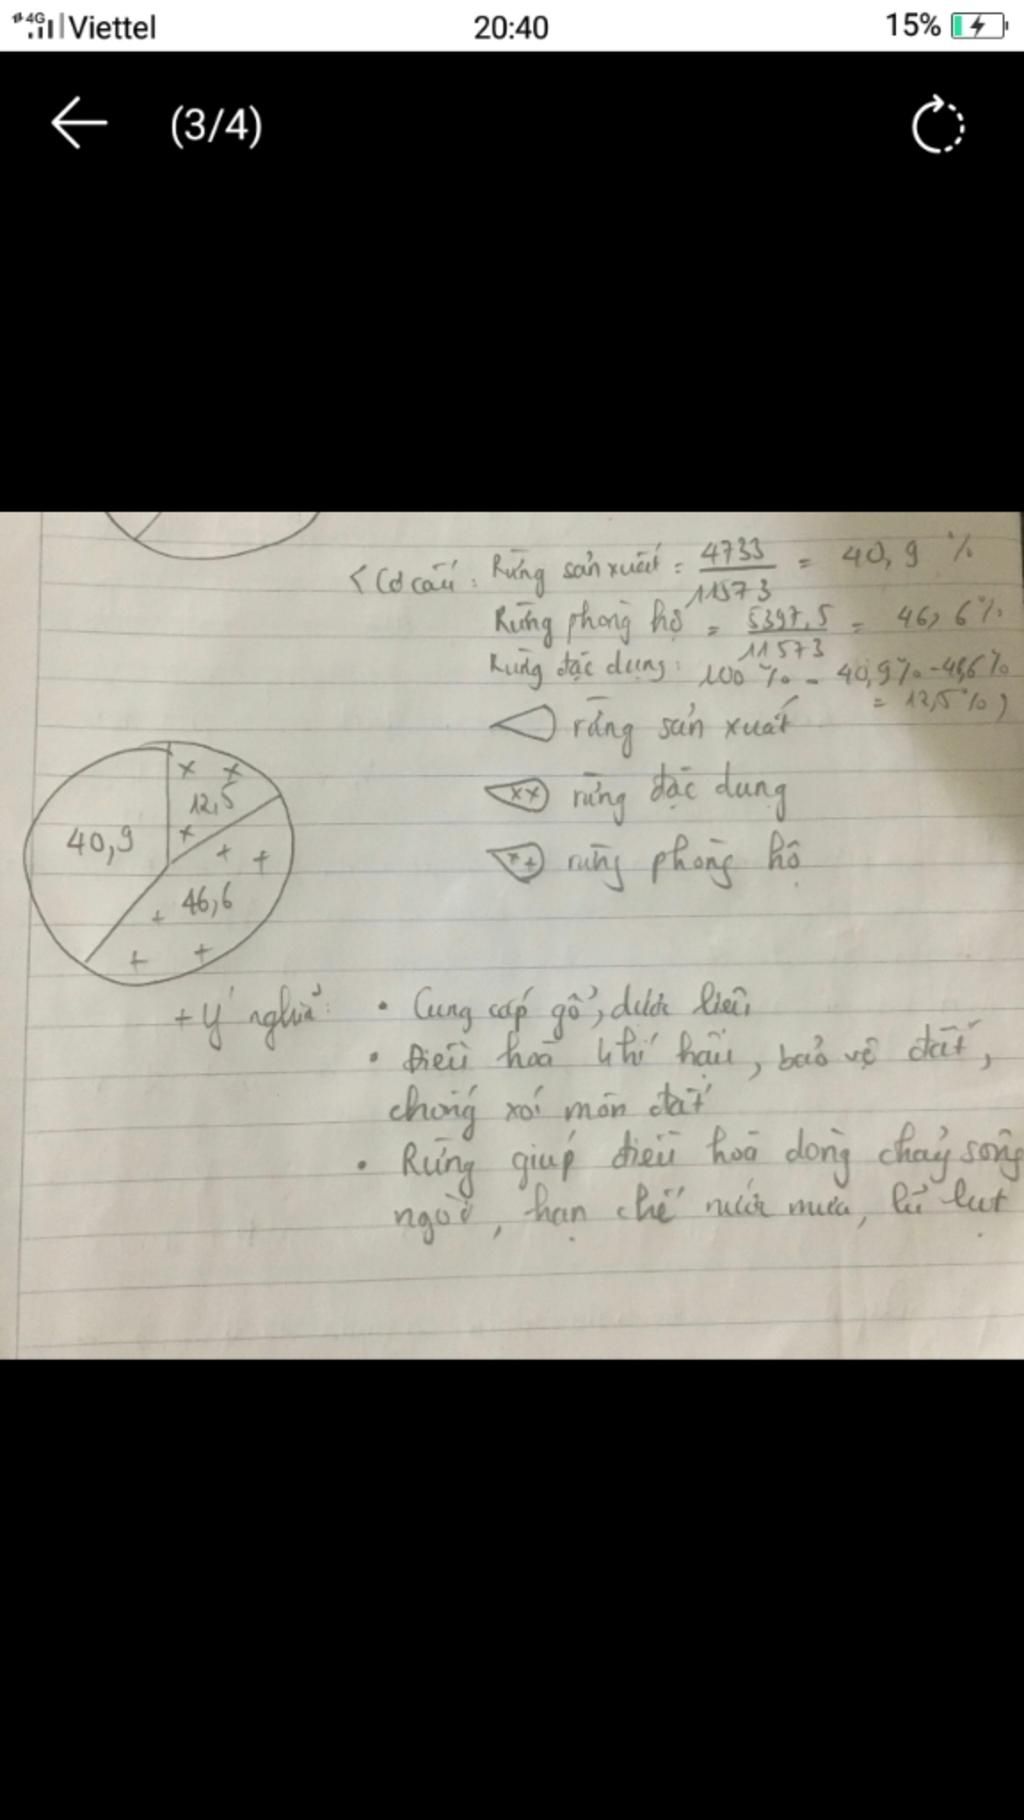 4G Viettel 20:40 15%
(3/4)
< Cơ cấu: Rừng sản xuất = 4733 / 11573 = 40,9 %
Rừng phòng hộ = 5397,5 / 11573 = 46,6%
Rừng đặc dụng: 100% - 40,9% - 46,6%
= 12,5%)
rừng sản xuất
xx rừng đặc dụng
x+ rừng phòng hộ
x x
12,5
40,9 x + +
46,6
+
+ +
+ Ý nghĩa: • Cung cấp gỗ, dược liệu
• Điều hoà khí hậu, bảo vệ đất,
chống xói mòn đất
• Rừng giúp điều hoà dòng chảy sông
ngòi, hạn chế nước mưa, lũ lụt